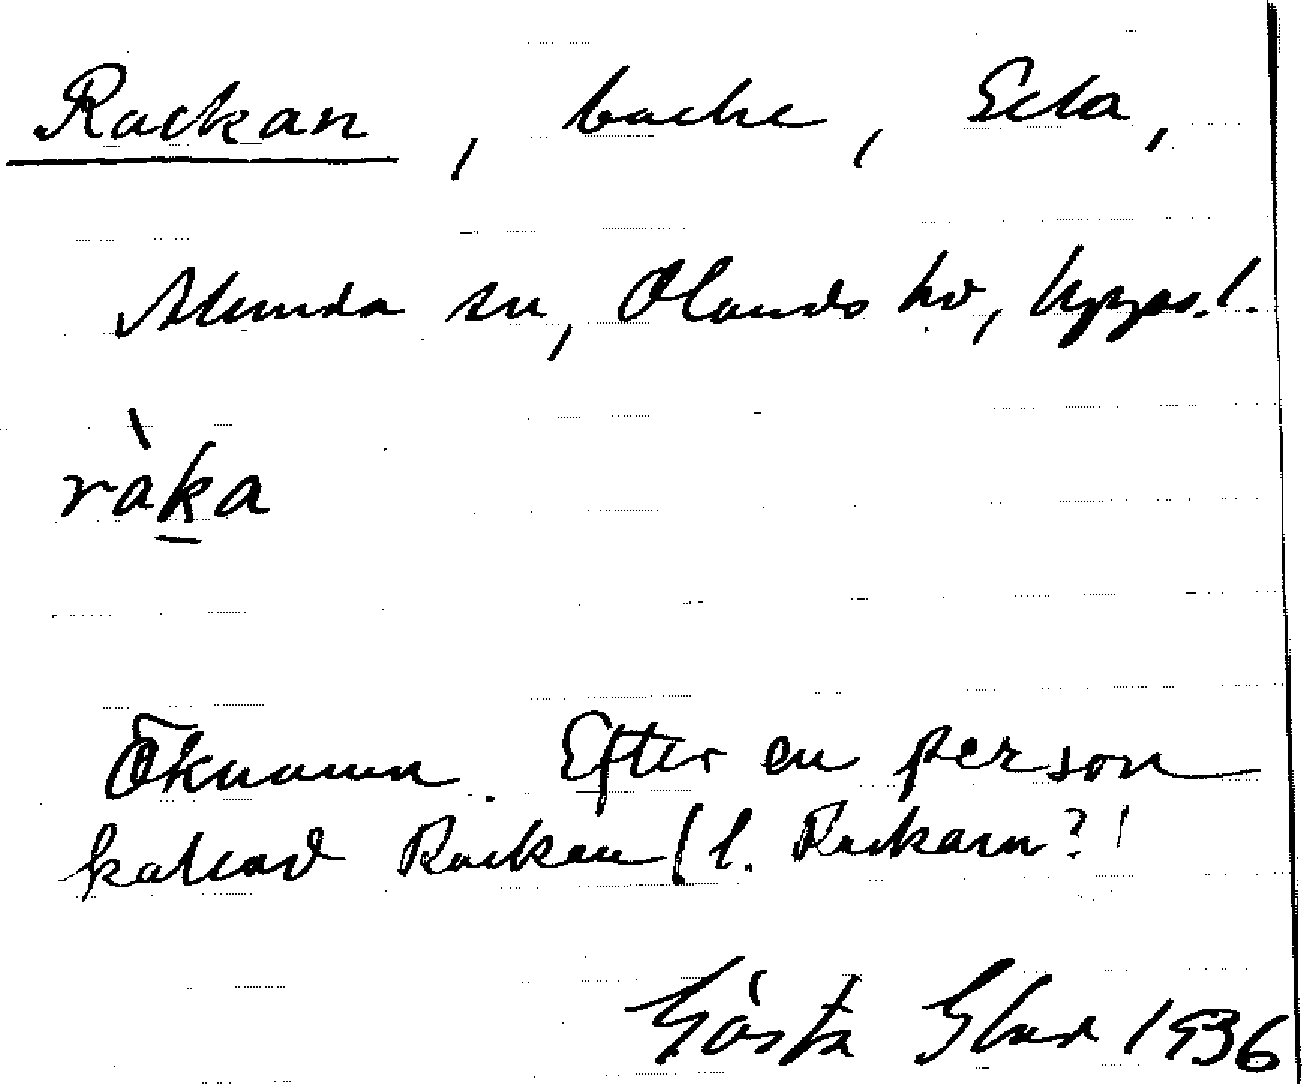 Rackan, backe, Ecka,
Alunda sn, Olands hd, Upps. l.
ràka
Öknamn. Efter en person
kallad Rackan (l. Rackarn?)
Gösta Glad 1936